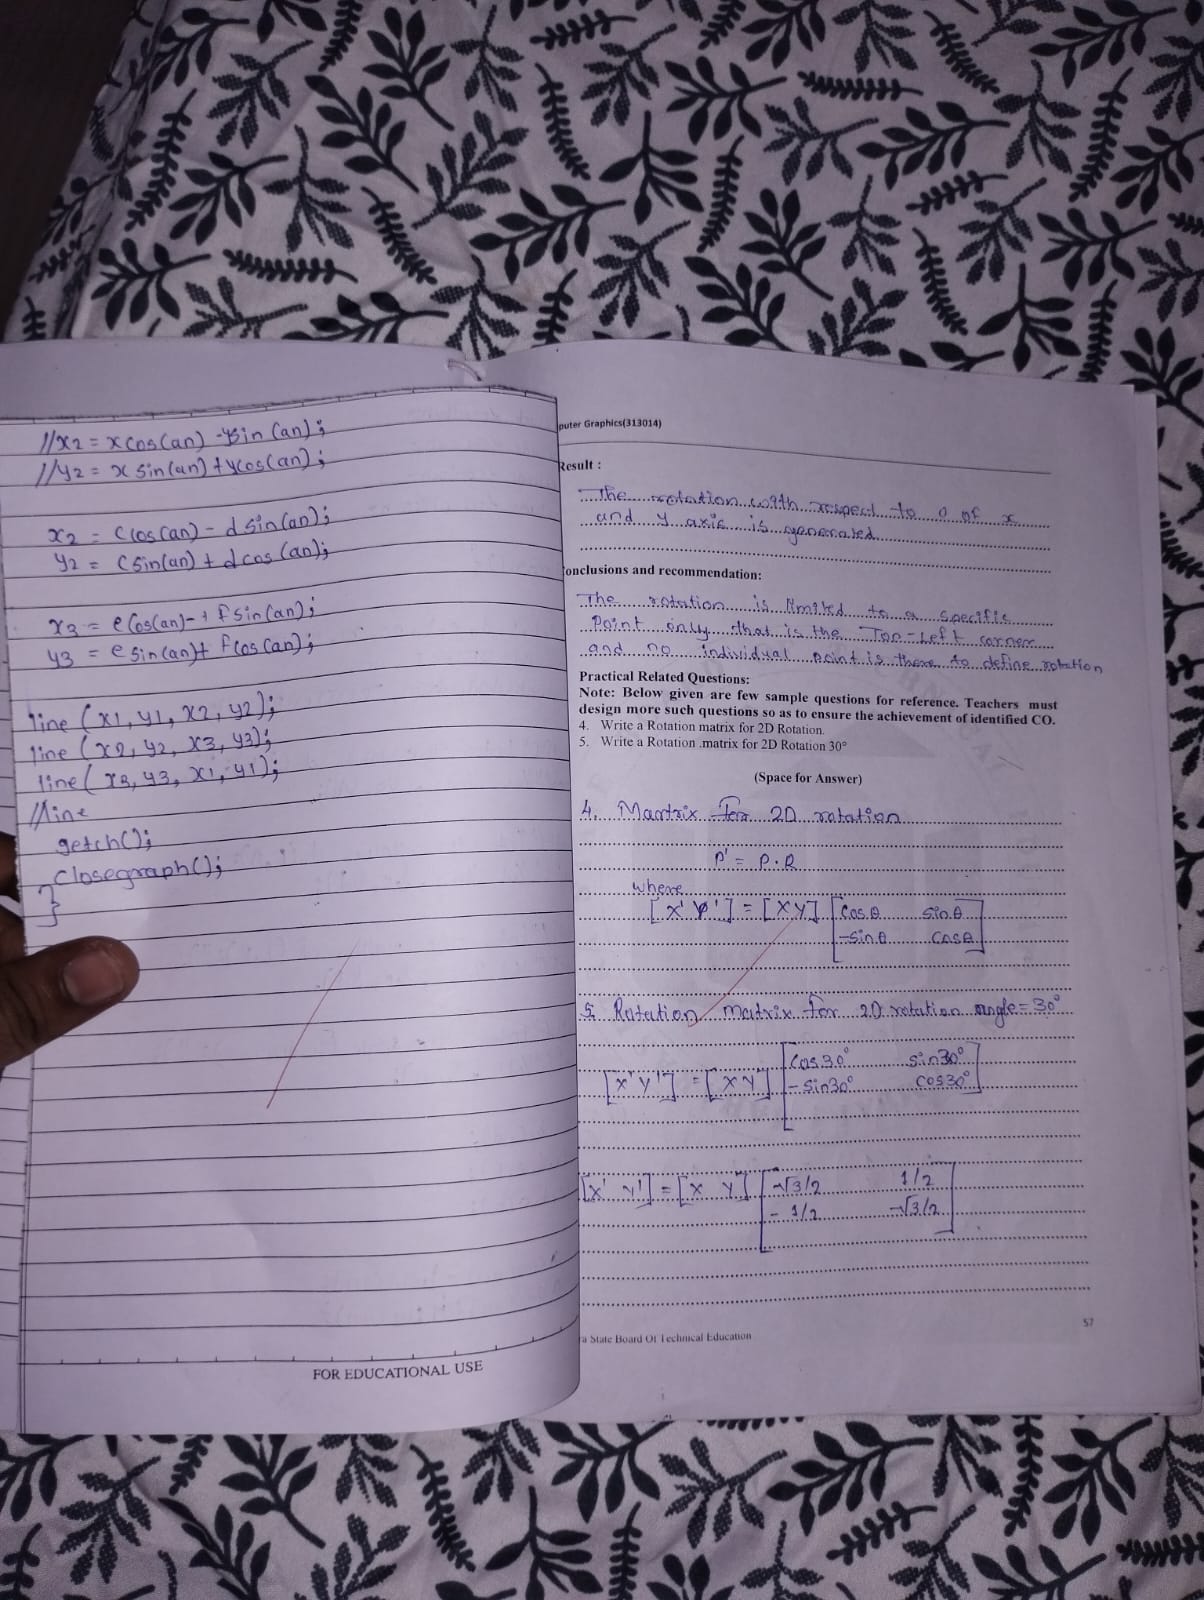 //x2 = xcos(an) - ysin(an);
//y2 = x sin(an) + ycos(an);
x2 = ccos(an) - d sin(an);
y2 = csin(an) + dcos(an);
x3 = ecos(an)- + fsin(an);
y3 = esin(an)+ fcos(an);
line (x1, y1, x2, y2);
line (x2, y2, x3, y3);
line( x3, y3, x1, y1);
//line
getch();
closegraph();
}
FOR EDUCATIONAL USE
puter Graphics(313014)
Result :
The rotation with respect to 0 of x
and y axis is generated.
onclusions and recommendation:
The rotation is limited to a specific
Point only that is the Top-Left corner
and no individual point is there to define rotation
Practical Related Questions:
Note: Below given are few sample questions for reference. Teachers must
design more such questions so as to ensure the achievement of identified CO.
4. Write a Rotation matrix for 2D Rotation.
5. Write a Rotation .matrix for 2D Rotation 30°
(Space for Answer)
4. Martrix for 2D rotation
P' = P.R
where
[x' y'] = [x y] [cosθ sinθ
-sinθ cosθ]
5. Rotation matrix for 2D rotation angle = 30°
[x' y'] = [x y] [cos30° sin30°
-sin30° cos30°]
[x' y'] = [x y] [√3/2 1/2
-1/2 √3/2]
a State Board Of Technical Education
57